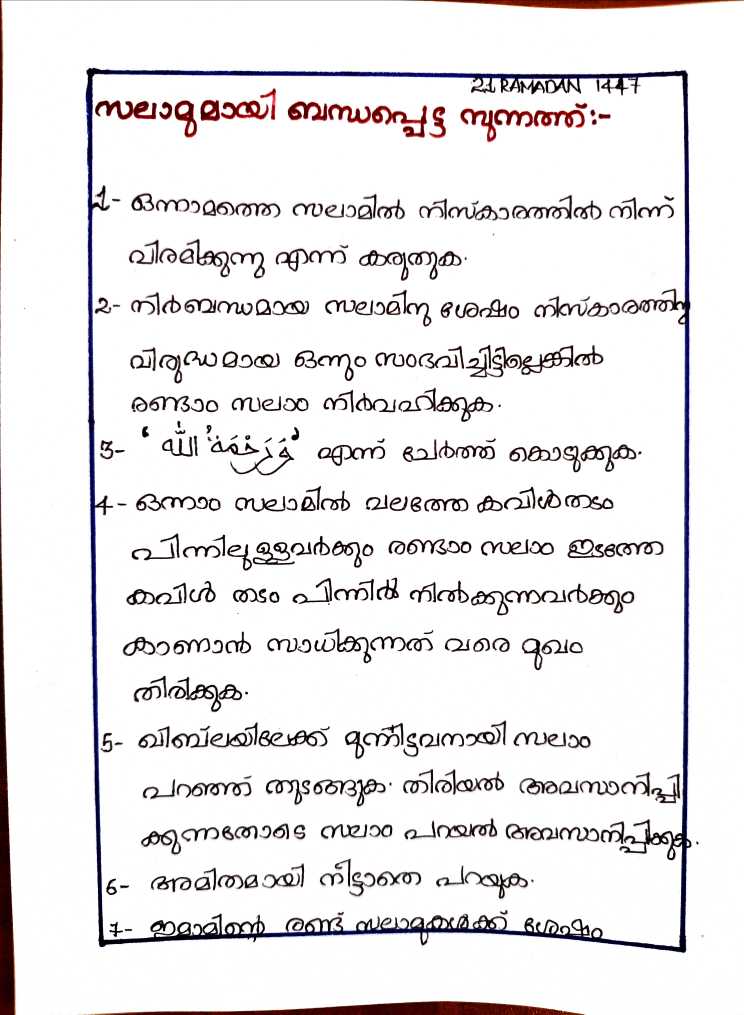 21 RAMADAN 1447
സലാമുമായി ബന്ധപ്പെട്ട സുന്നത്ത്:-
1- ഒന്നാമത്തെ സലാമിൽ നിസ്കാരത്തിൽ നിന്ന്
വിരമിക്കുന്നു എന്ന് കരുതുക.
2- നിർബന്ധമായ സലാമിനു ശേഷം നിസ്കാരത്തിനു
വിരുദ്ധമായ ഒന്നും സംഭവിച്ചിട്ടില്ലെങ്കിൽ
രണ്ടാം സലാം നിർവഹിക്കുക.
3- ‘وَرَحْمَةُ اللّٰه’ എന്ന് ചേർത്ത് കൊടുക്കുക.
4- ഒന്നാം സലാമിൽ വലത്തേ കവിൾതടം
പിന്നിലുള്ളവർക്കും രണ്ടാം സലാം ഇടത്തേ
കവിൾ തടം പിന്നിൽ നിൽക്കുന്നവർക്കും
കാണാൻ സാധിക്കുന്നത് വരെ മുഖം
തിരിക്കുക.
5- ഖിബ്‌ലയിലേക്ക് മുന്നിട്ടവനായി സലാം
പറഞ്ഞ് തുടങ്ങുക. തിരിയൽ അവസാനിപ്പി
ക്കുന്നതോടെ സലാം പറയൽ അവസാനിപ്പിക്കുക.
6- അമിതമായി നീട്ടാതെ പറയുക.
7- ഇമാമിന്റെ രണ്ട് സലാമുകൾക്ക് ശേഷം